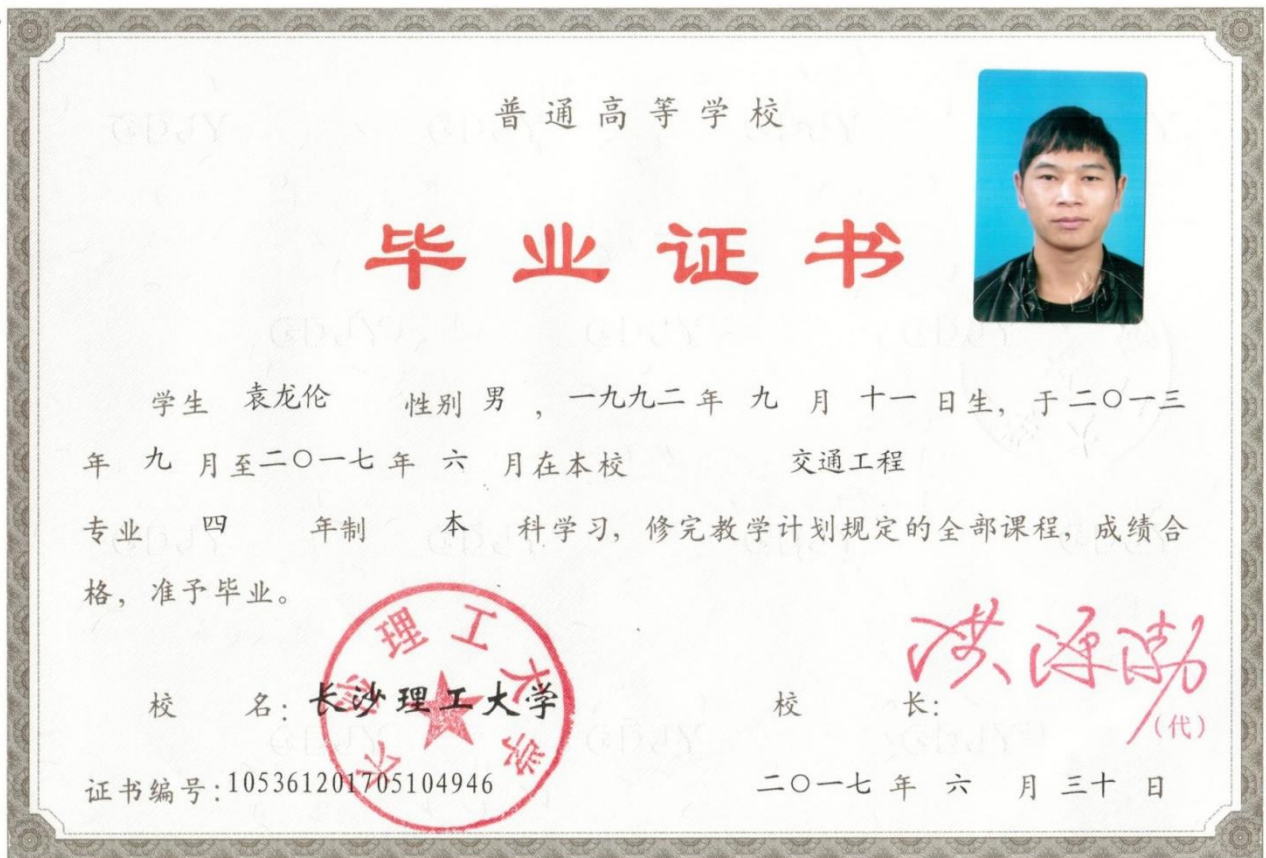 普通高等学校
毕业证书
学生 袁龙伦 性别 男 ，一九九二 年 九 月 十一 日生，于二〇一三
年 九 月至二〇一七 年 六 月在本校 交通工程
专业 四 年制 本 科学习，修完教学计划规定的全部课程，成绩合
格，准予毕业。
长沙理工大学
校 名：长沙理工大学 校 长：洪源渤
（代）
证书编号：105361201705104946 二〇一七 年 六 月 三十 日